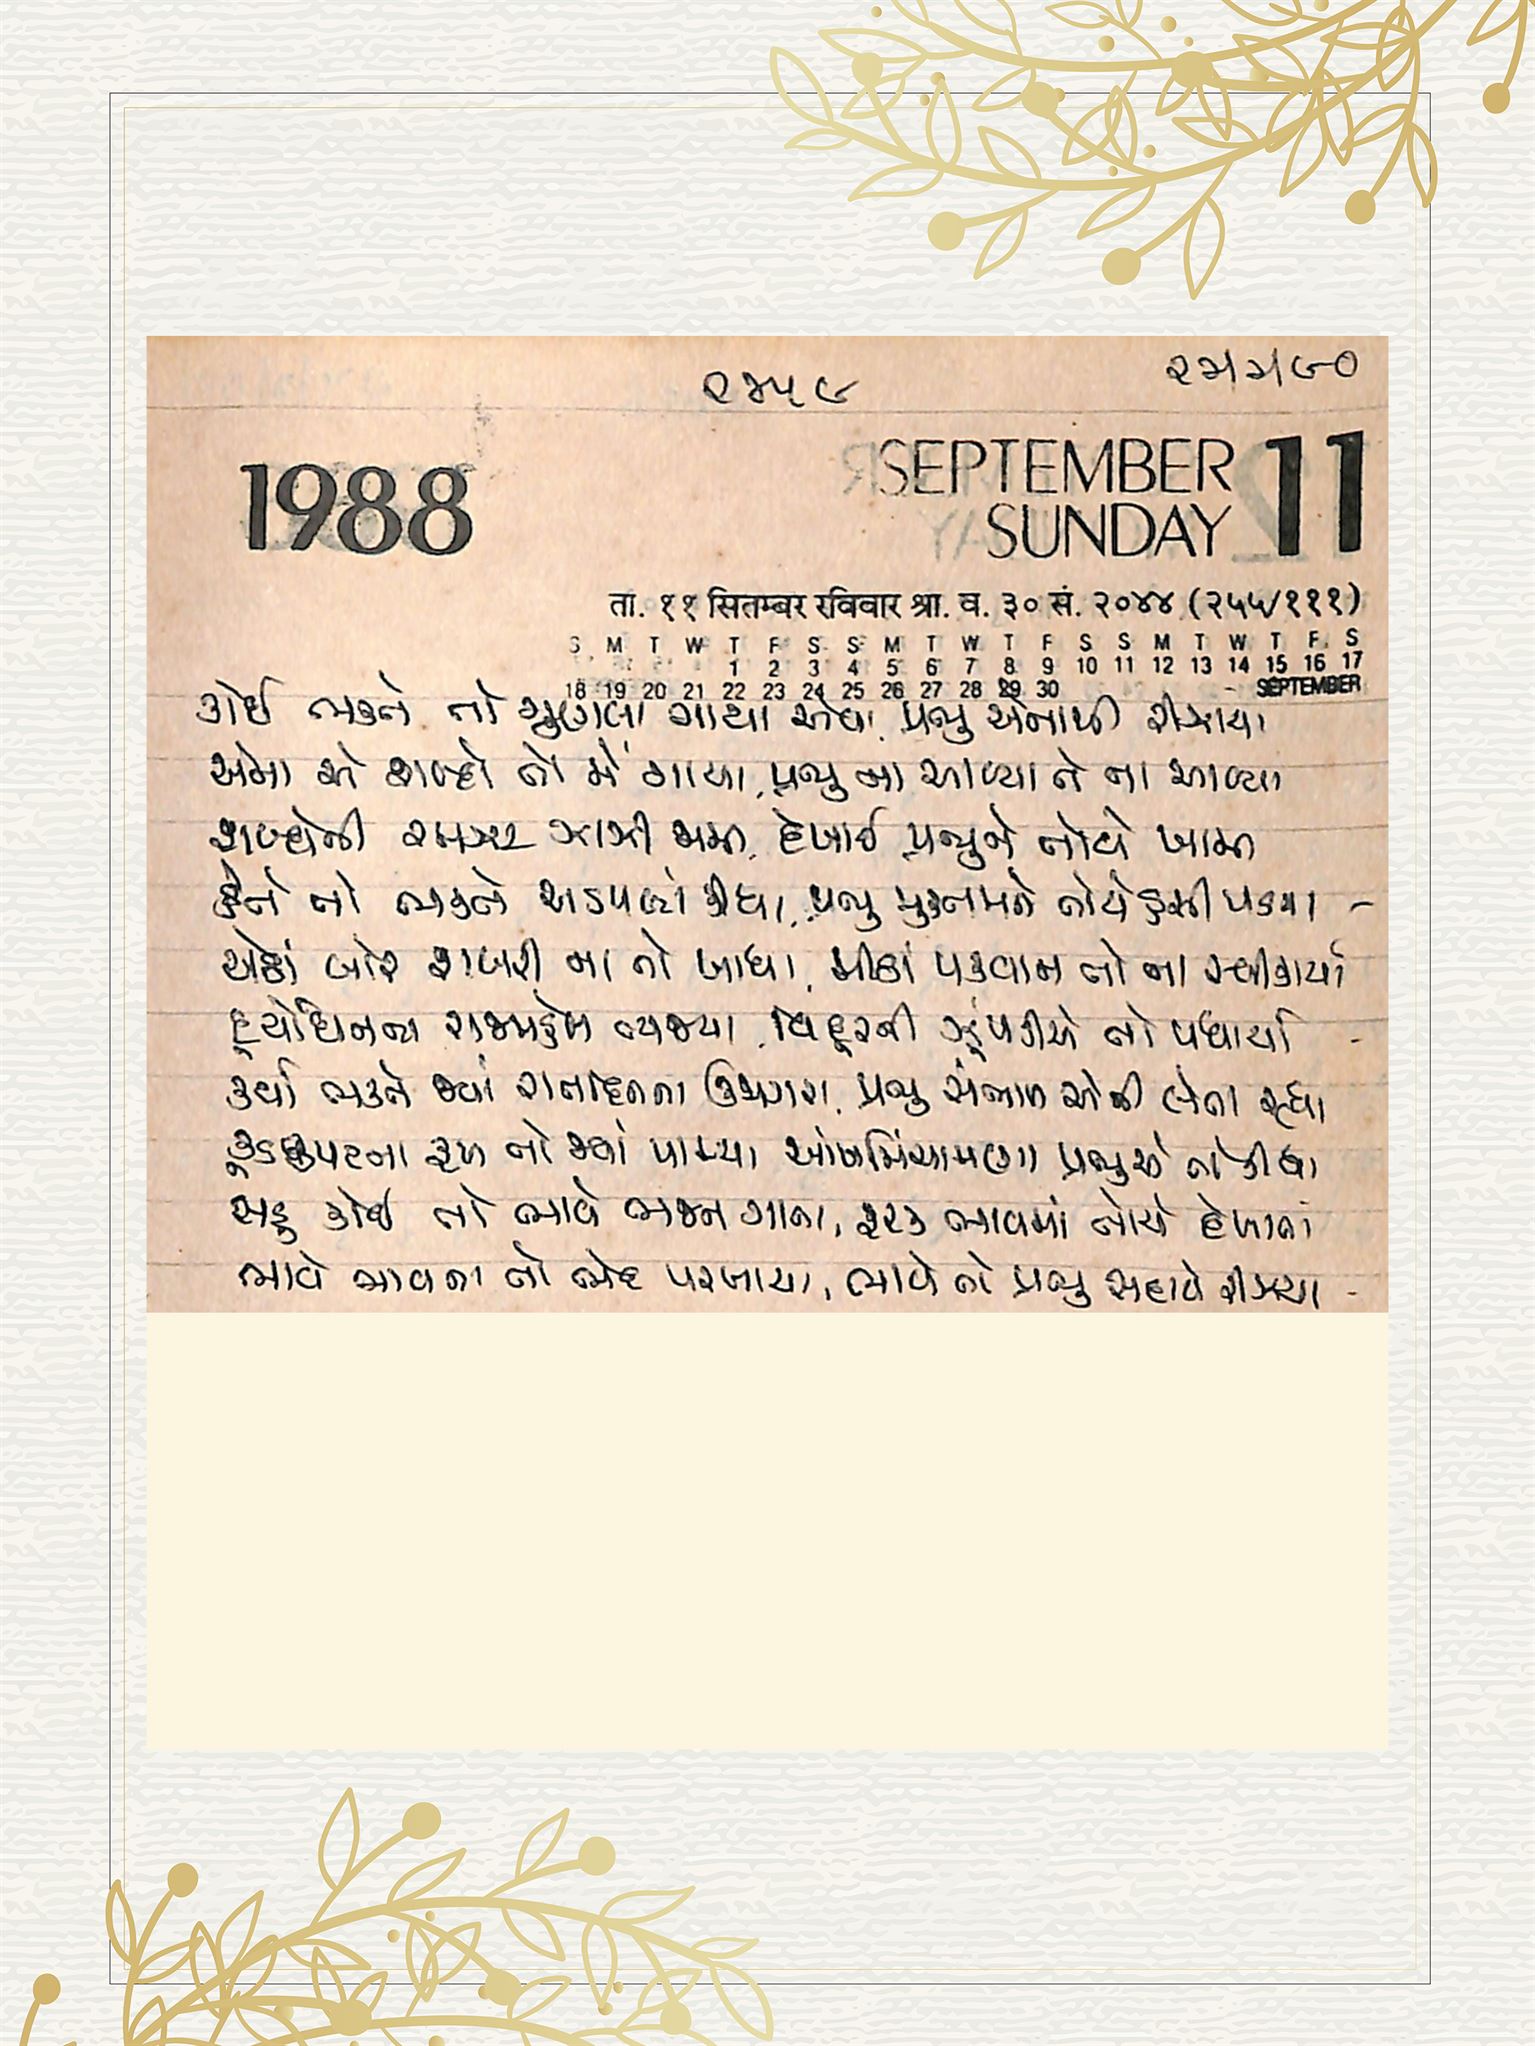 ૨૪૫૯
૨૫|૫|૯૦
1988
SEPTEMBER 11
SUNDAY
ता. ११ सितम्बर रविवार श्रा. व. ३० सं. २०४४ (२५५/१११)
S M T W T F S S M T W T F S S M T W T F S
1 2 3 4 5 6 7 8 9 10 11 12 13 14 15 16 17
18 19 20 21 22 23 24 25 26 27 28 29 30 SEPTEMBER
કોઈ ભક્તને તો ગુણલા ગાયા એવા, પ્રભુ એનાથી રીઝાયા
એમા એ શબ્દો તો મેં ગાયા, પ્રભુ ના આવ્યા તે ના આવ્યા
શબ્દોની રમઝટ ઝાઝી, દેખાઈ પ્રભુને તોયે ખામી
કૈંને તો ભક્તને અડપલાં કીધાં, પ્રભુ તોયે પડયા -
એઠાં બોર શબરીના તો ખાધા, મીઠાં પકવાન તો ના સ્વીકાર્યા
દૂર્યોધનના રાજમહેલ ત્યજ્યા, વિદૂરની ઝૂંપડીએ તો પધાર્યા -
કર્યા ભક્તે જ્યાં રાતદિનના ઉજાગરા, પ્રભુ સંભાળ એની લેતા રહ્યા
કૂડકપટના તો જ્યાં પામ્યા, આંખમિંચામણા પ્રભુએ તો કીધા
સહુ કોઈ તો ભાવે ભજન ગાતા, ફરક ભાવમાં તોયે દેખાતા
ભાવે ભાવના તો ભેદ પરખાયા, ભાવે તો પ્રભુ સદાયે રીઝ્યા -